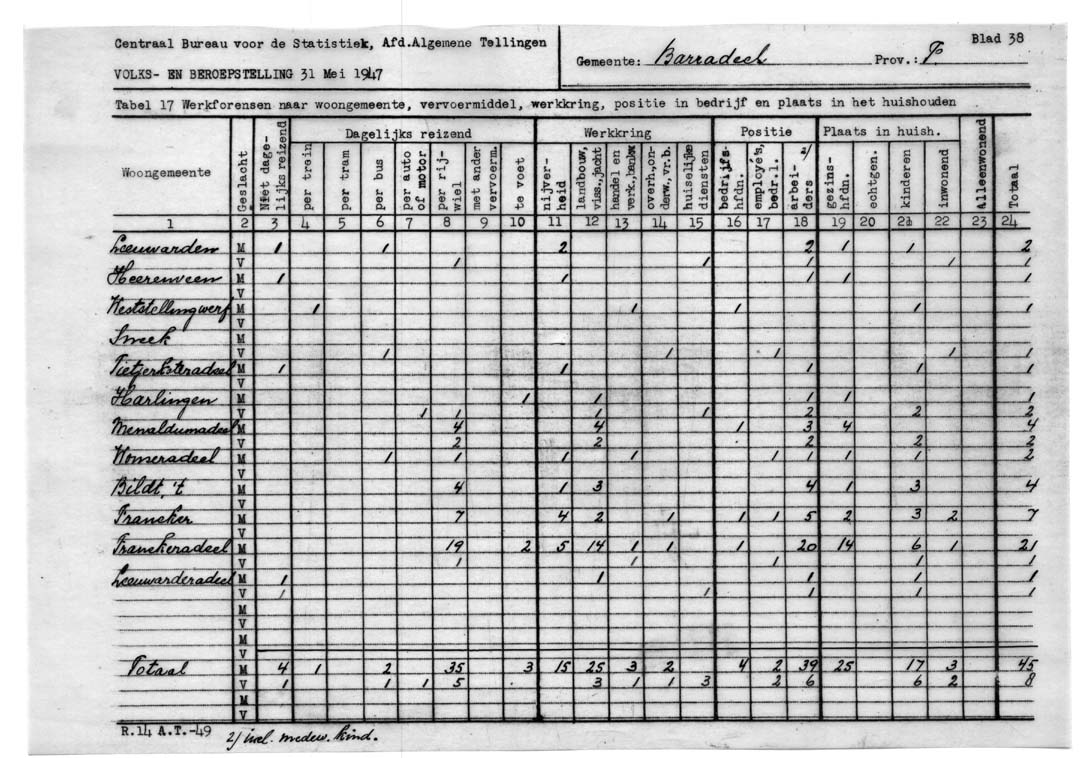 Centraal Bureau voor de Statistiek, Afd.Algemene Tellingen
VOLKS- EN BEROEPSTELLING 31 Mei 1947
Gemeente: Barradeel Prov.: F. Blad 38
Tabel 17 Werkforensen naar woongemeente, vervoermiddel, werkkring, positie in bedrijf en plaats in het huishouden
Woongemeente Geslacht Niet dagelijks reizend Dagelijks reizend Werkkring Positie Plaats in huish. Alleenwonend Totaal
per trein per tram per bus per auto of motor per rijwiel met ander vervoerm. te voet nijverheid landbouw, viss.,jacht handel en verk.,bankw overh.,onderw.,vr.b. huiselijke diensten bedrijfshfdn. employé's, bedr.l. arbeiders 2/ gezinshfdn. echtgen. kinderen inwonend
1 2 3 4 5 6 7 8 9 10 11 12 13 14 15 16 17 18 19 20 21 22 23 24
Leeuwarden M 1 1 2 2 1 1 2
V 1 1 1 1 1
Heerenveen M 1 1 1 1 1
V
Weststellingwerf M 1 1 1 1 1
V
Sneek M
V 1 1 1 1 1
Tietjerksteradeel M 1 1 1 1 1
V
Harlingen M 1 1 1 1 1
V 1 1 1 1 2 2 2
Menaldumadeel M 4 4 1 3 4 4
V 2 2 2 2 2
Wonseradeel M 1 1 1 1 1 1 1 1 2
V
Bildt, 't M 4 1 3 4 1 3 4
V
Franeker M 7 4 2 1 1 1 5 2 3 2 7
V
Franekeradeel M 19 2 5 14 1 1 1 20 14 6 1 21
V 1 1 1 1 1
Leeuwarderadeel M 1 1 1 1 1
V 1 1 1 1 1
M
V
M
V
Totaal M 4 1 2 35 3 15 25 3 2 4 2 39 25 17 3 45
V 1 1 1 5 3 1 1 3 2 6 6 2 8
M
V
R.14 A.T.-49
2/ incl. medew. kind.